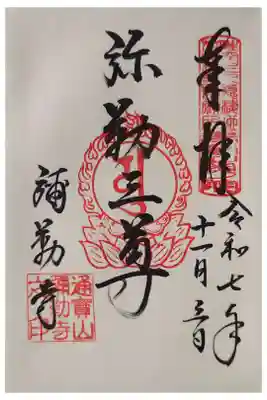 奉拝
令和七年
十一月三日
弥勒三尊
彌勒寺
通寶山
弥勒寺
之印